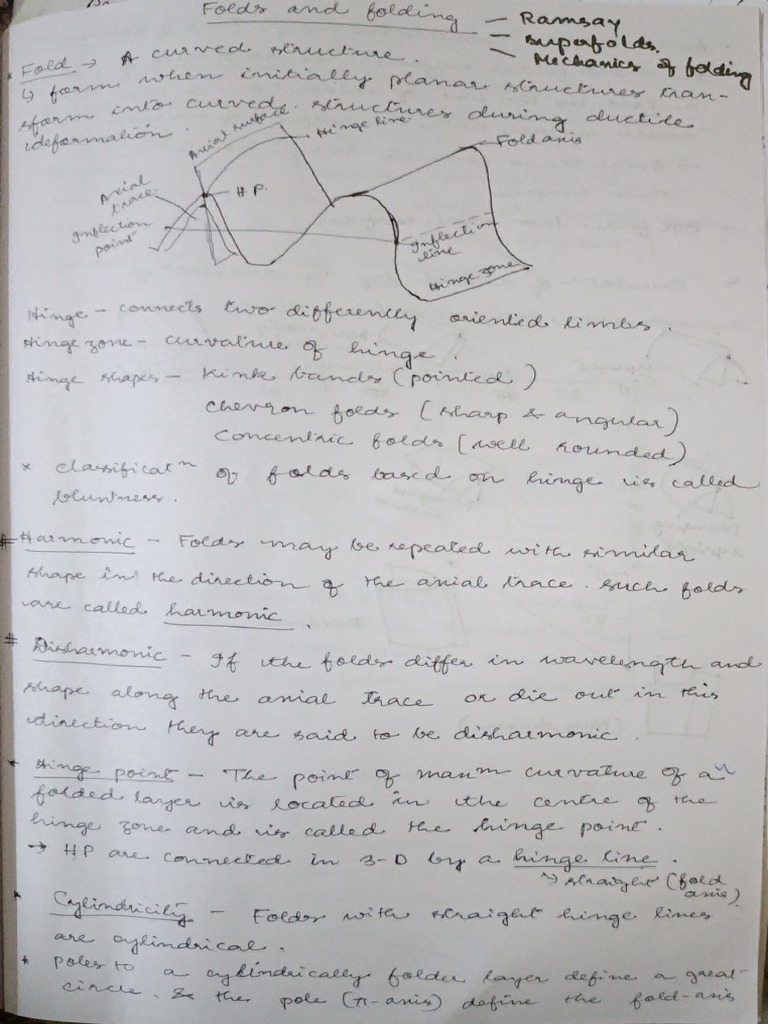 Folds and folding — Ramsay
— Superfolds.
— Mechanics of folding
* Fold → A curved structure.
↳ form when initially planar structures tran-
sform into curved structures during ductile
deformation.
Axial surface
Hinge line
Fold axis
H.P.
Axial
trace
Inflection
point
Inflection
line
Hinge zone
Hinge – connects two differently oriented limbs.
Hinge zone – curvature of hinge.
Hinge shapes – Kink bands (pointed)
Chevron folds (sharp & angular)
Concentric folds (well rounded)
* Classificatⁿ of folds based on hinge is called
bluntness.
# Harmonic – Folds may be repeated with similar
shape in the direction of the axial trace. such folds
are called harmonic.
# Disharmonic – If the folds differ in wavelength and
shape along the axial trace or die out in this
direction they are said to be disharmonic.
Hinge point – The point of maxᵐ curvature of a
folded layer is located in the centre of the
hinge zone and is called the hinge point.
→ HP are connected in 3-D by a hinge line.
↳ straight (fold
axis)
* Cylindricity – Folds with straight hinge lines
are cylindrical.
* poles to a cylindrically folder layer define a great
circle. & the pole (π-axis) define the fold-axis